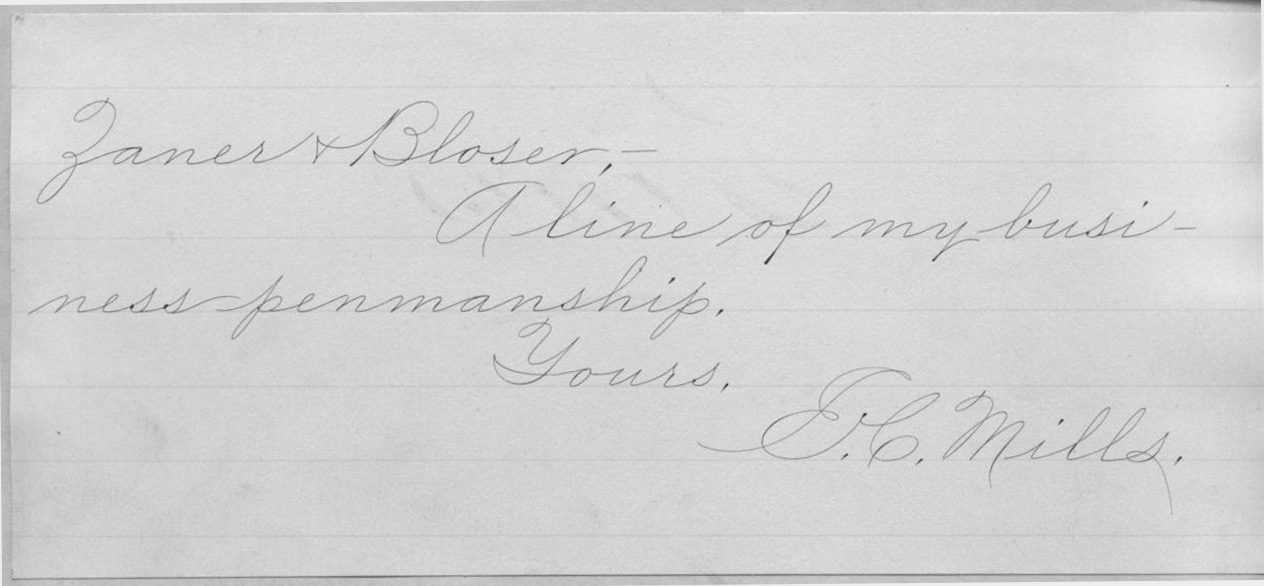 Zaner & Bloser,—
A line of my busi-
ness penmanship.
Yours,
E. C. Mills.